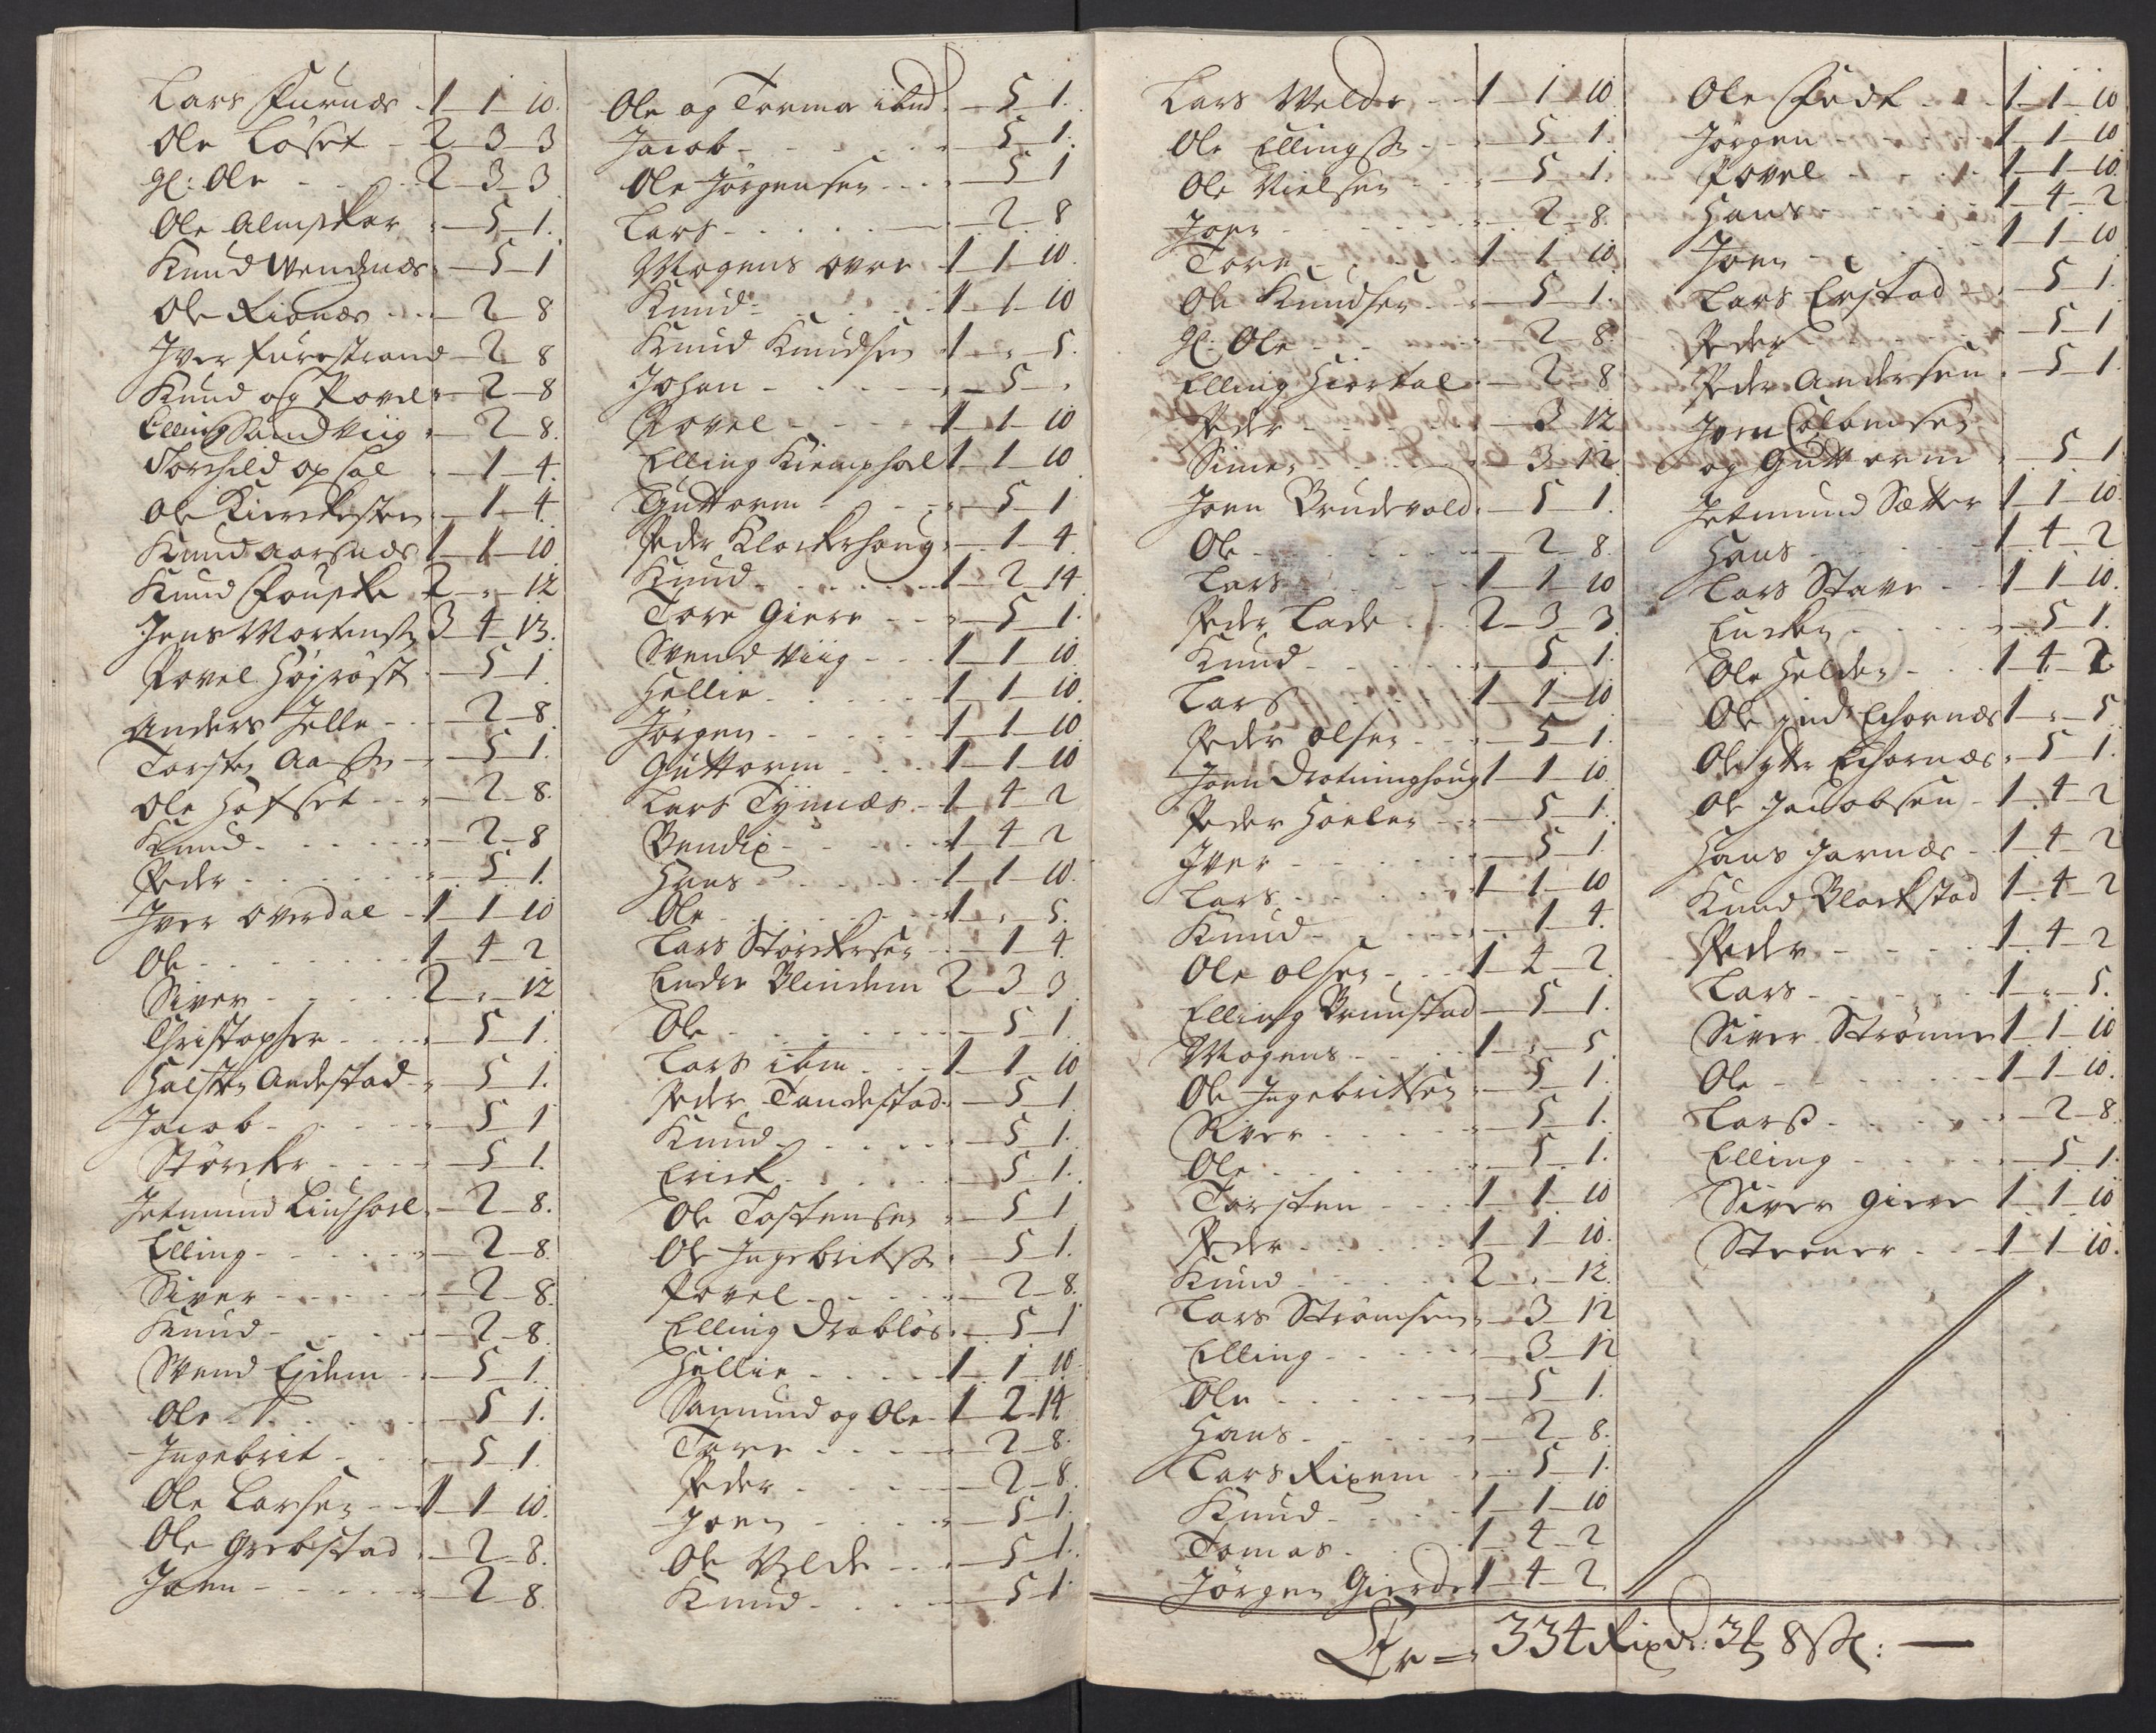 Lars Furnæs 1 1 10.
Ole Löset 2 3 3
gl: Ole 2 3 3
Ole Almskar 5 1.
Knud Wendnæs 5 1
Ole Rionæs 2 8
Iver furestrand 2 8
Knud og Povel 2 8
Elling Sandviig 2 8.
Torchild opsal 1 4.
Ole Kierchesten 1 4.
Knud Aarsnæs 1 1 10
Knud Fouske 2 " 12
Jens Mortens 3 4 13.
Povel Höjröst 5 1
Anders Jelle 2 8
Torsten Aas 5 1.
Ole Hofset 2 8.
Knud 2 8
Peder 5 1.
Iver overdal 1 1 10
Ole 1 4 2
Siver 2 " 12
Christopher 5 1.
Halsten Andestad 5 1.
Jacob 5 1
Störcker 5 1.
Jetmund Liushoel 2 8.
Elling 2 8
Siver 2 8.
Knud 2 8.
Svend Eidem 5 1.
Ole 5 1.
Ingebrit 5 1.
Ole Larsen 1 1 10.
Ole Grebstad 2 8.
Joen 2 8.
Ole og Tormo ibnd 5 1.
Jacob 5 1.
Ole Jörgensen 5 1
Lars 2 8
Mogens ovre 1 1 10.
Knud 1 1 10
Knud Knudsen 1 " 5.
Johan 5 "
Povel 1 1 10
Elling Kiemphoel 1 1 10
Guttorm 5 1
Peder Klockerhoug 1 4.
Knud 1 2 14
Tore Giere 5 1.
Svend Viig 1 1 10.
Hellie 1 1 10.
Jörgen 1 1 10.
Guttorm 1 1 10
Lars Tynnæs 1 4 2
Bendix 1 4 2
Hans 1 1 10.
Ole 1 " 5.
Lars Störckersen 1 4.
Endre Blindem 2 3 3
Ole 5 1
Lars ibm 1 1 10
Peder Tandestad 5 1
Knud 5 1.
Erick 5 1.
Ole Tostensen 5 1
Ole Ingebrits 5 1.
Povel 2 8.
Elling Drablös 5 1
Hellie 1 1 10
Samund og Ole 1 2 14
Tore 2 8.
Peder 2 8.
Joen 5 1.
Ole Velde 5 1.
Knud 5 1
Lars Welde 1 1 10
Ole Ellings 5 1
Ole Nielsen 5 1.
Joen 2 8.
Tore 1 1 10.
Ole Knudsen 5 1.
gl: Ole 2 8.
Elling Hiortal 2 8
Peder 3 12
Simen 3 12
Joen Brudevold 5 1.
Ole 2 8.
Lars 1 1 10
Peder Lade 2 3 3
Knud 5 1.
Lars 1 1 10
Peder olsen 5 1.
Joen Drotninghoug 1 1 10.
Peder Hoelen 5 1.
Iver 5 1.
Lars 1 1 10
Knud 1 4.
Ole olsen 1 4 2
Elling Brunstad 5 1.
Mogens 1 " 5.
Ole Ingebritsen 5 1.
Siver 5 1.
Ole 5 1.
Torsten 1 1 10
Peder 1 1 10.
Knud 2 " 12.
Lars Strömsem 3 12
Elling 3 12
Ole 5 1.
Hans 2 8.
Lars Rixem 5 1.
Knud 1 1 10
Tomas 1 4 2
Jörgen Gierde 1 4 2.
Ole Fedt 1 1 10
Jörgen 1 1 10
Povel 1 1 10.
Hans 1 4 2
Joen 1 1 10
Lars Erstad 5 1.
Peder 5 1
Peder Andersen 5 1.
Joen Colbensen
og Guttorm 5 1
Jetmund Sætter 1 1 10.
Hans 1 4 2
Lars Stave 1 1 10.
5 1.
Ole Helden 1 4 2
Ole ind: Echornæs 1 " 5.
Ole ytte Echornæs 5 1.
Ole Jacobsen 1 4 2
Hans Jarnæs 1 4 2
Knud Blackstad 1 4 2
Peder 1 4 2
Lars 1 " 5.
Siver Strömme 1 1 10
Ole 1 1 10.
Lars 2 8.
Elling 5 1.
Siver Giere 1 1 10
Steener 1 1 10.
Er = 334 Rixd: 3 8 :